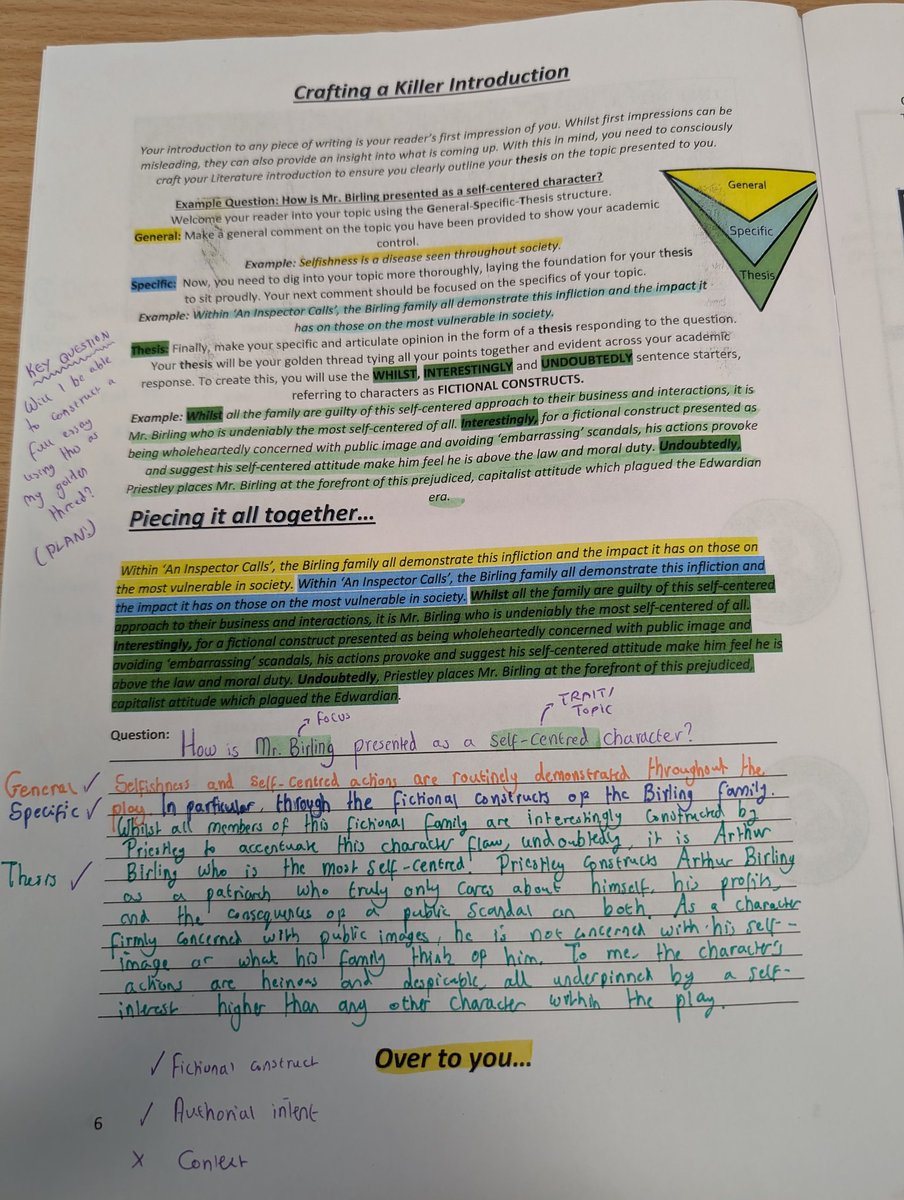 Crafting a Killer Introduction
Your introduction to any piece of writing is your reader's first impression of you. Whilst first impressions can be
misleading, they can also provide an insight into what is coming up. With this in mind, you need to consciously
craft your Literature introduction to ensure you clearly outline your thesis on the topic presented to you.
Example Question: How is Mr. Birling presented as a self-centered character?
Welcome your reader into your topic using the General-Specific-Thesis structure.
General: Make a general comment on the topic you have been provided to show your academic
control.
Example: Selfishness is a disease seen throughout society.
Specific: Now, you need to dig into your topic more thoroughly, laying the foundation for your thesis
to sit proudly. Your next comment should be focused on the specifics of your topic.
Example: Within 'An Inspector Calls', the Birling family all demonstrate this infliction and the impact it
has on those on the most vulnerable in society.
Thesis: Finally, make your specific and articulate opinion in the form of a thesis responding to the question.
Your thesis will be your golden thread tying all your points together and evident across your academic
response. To create this, you will use the WHILST, INTERESTINGLY and UNDOUBTEDLY sentence starters,
referring to characters as FICTIONAL CONSTRUCTS.
Example: Whilst all the family are guilty of this self-centered approach to their business and interactions, it is
Mr. Birling who is undeniably the most self-centered of all. Interestingly, for a fictional construct presented as
being wholeheartedly concerned with public image and avoiding 'embarrassing' scandals, his actions provoke
and suggest his self-centered attitude make him feel he is above the law and moral duty. Undoubtedly,
Priestley places Mr. Birling at the forefront of this prejudiced, capitalist attitude which plagued the Edwardian
era.
General
Specific
Thesis
KEY QUESTION
Will I be able
to construct a
full essay
using tho as
my golden
thread?
(PLAN!)
Piecing it all together...
Within 'An Inspector Calls', the Birling family all demonstrate this infliction and the impact it has on those on
the most vulnerable in society. Within 'An Inspector Calls', the Birling family all demonstrate this infliction and
the impact it has on those on the most vulnerable in society. Whilst all the family are guilty of this self-centered
approach to their business and interactions, it is Mr. Birling who is undeniably the most self-centered of all.
Interestingly, for a fictional construct presented as being wholeheartedly concerned with public image and
avoiding 'embarrassing' scandals, his actions provoke and suggest his self-centered attitude make him feel he is
above the law and moral duty. Undoubtedly, Priestley places Mr. Birling at the forefront of this prejudiced,
capitalist attitude which plagued the Edwardian.
Focus
TRAIT/
TOPIC
Question: How is Mr. Birling presented as a self-centred character?
General ✓ Selfishness and self-centred actions are routinely demonstrated throughout the
Specific ✓ play. In particular, through the fictional constructs of the Birling family.
Whilst all members of this fictional family are interestingly constructed by
Priestley to accentuate this character flaw, undoubtedly, it is Arthur
Thesis ✓ Birling who is the most self-centred. Priestley constructs Arthur Birling
as a patriarch who truly only cares about himself, his profits,
and the consequences of a public scandal on both. As a character
firmly concerned with public images, he is not concerned with his self-
image or what his family think of him. To me, the character's
actions are heinous and despicable, all underpinned by a self-
interest higher than any other character within the play.
Over to you...
✓ Fictional construct
✓ Authorial intent
x Context
6